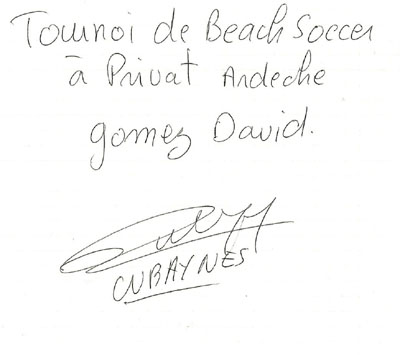 Tournoi de Beach Soccer
à Privat Ardeche
gomez David.
CUBAYNES